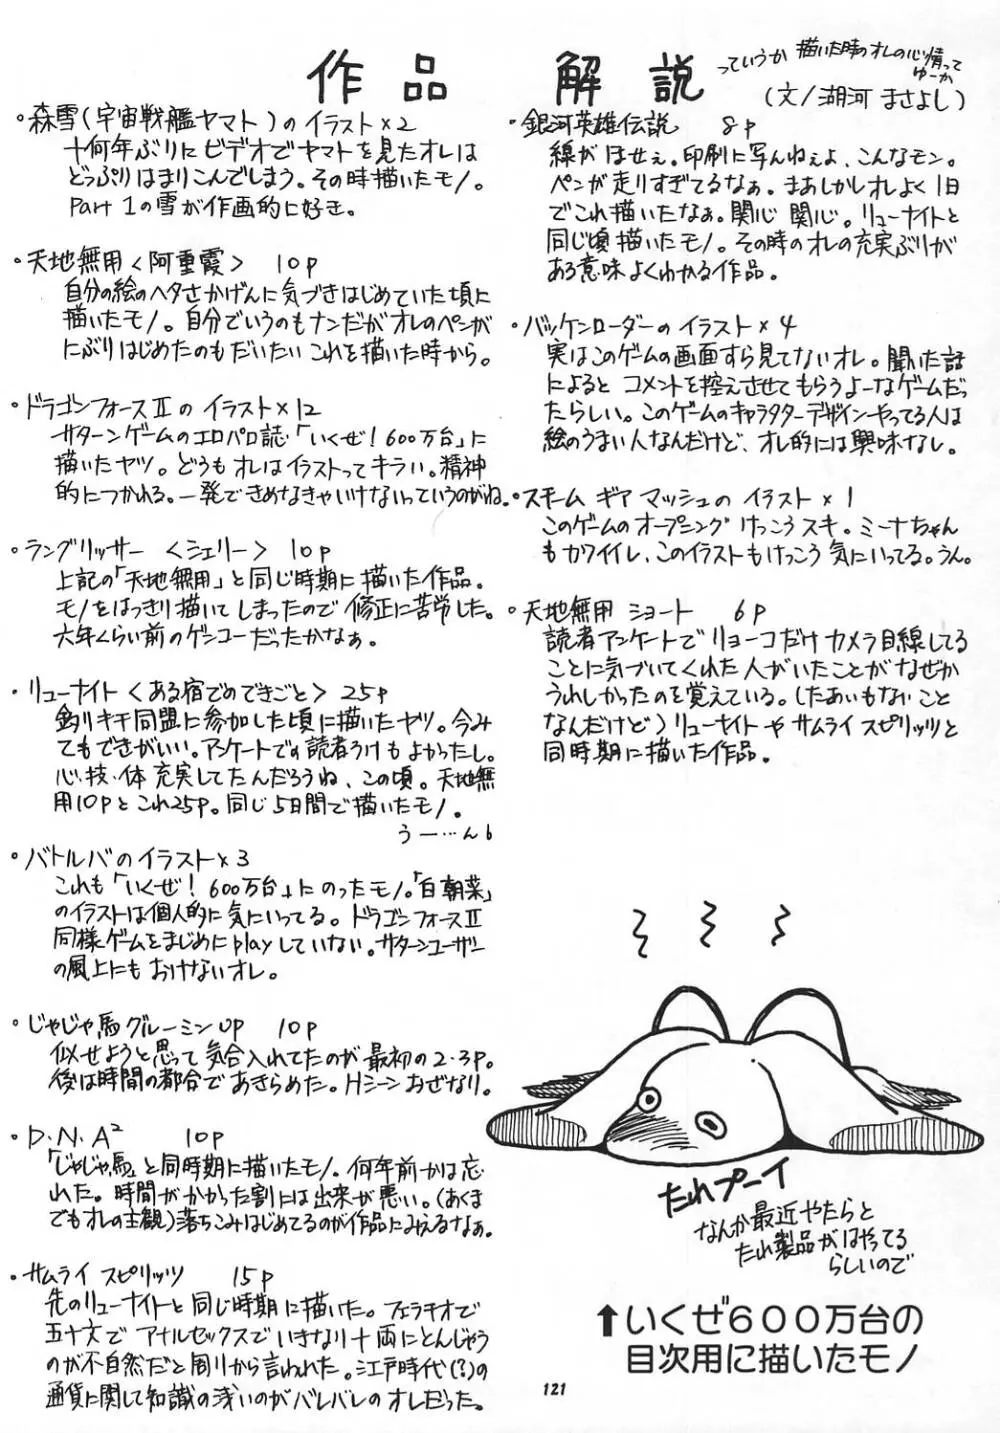 作品 解説
っていうか 描いた時のオレの心情って
ゆーか
(文/湖河 まさよし)
・森雪(宇宙戦艦ヤマト)の イラスト×2
十何年ぶりに ビデオで ヤマトを見たオレは
どっぷりはまりこんでしまう。その時描いたモノ。
Part 1の雪が作画的に好き。
・天地無用<阿重霞> 10P
自分の絵のヘタさかげんに気づきはじめていた頃に
描いたモノ。自分でいうのもナンだがオレのペンが
にぶりはじめたのもだいたい これを描いた時から。
・ドラゴンフォースⅡの イラスト×12
サターンゲームのエロパロ誌・「いくぜ!600万台」に
描いたヤツ。どうも オレはイラストってキラい。精神
的につかれる。一発できめなきゃいけないっていうのがね。
・ラングリッサー <シェリー> 10P
上記の「天地無用」と同じ時期に描いた作品。
モノをはっきり描いて しまったので 修正に苦労した。
六年くらい前のゲンコーだったかなぁ。
・リューナイト<ある宿でのできごと> 25P
釣りキチ同盟に参加した頃に描いたヤツ。今み
てもできがいい。アンケートでの読者うけもよかったし。
心・技・体 充実してたんだろうね、この頃。天地無
用10Pとこれ25P。同じ5日間で描いたモノ。
うー…ん6
・バトルバのイラスト×3
これも「いくぜ! 600万台」に のったモノ。「白朝菜」
のイラストは個人的に気にいってる。ドラゴンフォースⅡ
同様ゲームをまじめにplayしていない。サターンユーザー
の風上にも おけないオレ。
・じゃじゃ馬グルーミンUP 10P
似せようと思って 気合入れてたのが 最初の2・3P。
後は時間の都合で あきらめた。Hシーン おざなり。
・D・N・A² 10P
「じゃじゃ馬」と同時期に描いたモノ。何年前かは忘
れた。時間がかかった割には出来が悪い。(あくま
でもオレの主観)落ちこみはじめてるのが作品にみえるなぁ。
・サムライ スピリッツ 15P
先のリューナイトと同じ時期に描いた。フェラチオで
五十文で アナルセックスで いきなり十両にとんじゃう
のが不自然だと周りから言われた。江戸時代(?)の
通貨に関して知識の浅いのがバレバレのオレだった。
・銀河英雄伝説 8P
線が ほせぇ。印刷に写んねぇよ、こんなモン。
ペンが走りすぎてるなぁ。まあしかしオレよく1日
でこれ描いたなぁ。関心 関心。リューナイトと
同じ頃 描いたモノ。その時のオレの充実ぶりが
ある意味 よくわかる作品。
・バッケンローダーの イラスト×4
実はこのゲームの画面すら見てないオレ。聞いた話
によると コメントを控えさせて もらうよーなゲームだっ
たらしい。このゲームのキャラクターデザインやってる人は
絵のうまい人なんだけど、オレ的には興味なし。
・スチーム ギア マッシュの イラスト×1
このゲームのオープニング けっこう スキ。ミーナちゃん
も カワイイし、このイラストもけっこう 気にいってる。うん。
・天地無用 ショート 6P
読者アンケートで リョーコだけ カメラ目線してる
ことに気づいてくれた人がいたことがなぜか
うれしかったのを覚えている。(たあいもない こと
なんだけど)リューナイト や サムライ スピリッツと
同時期に描いた作品。
たれプーイ
なんか最近やたらと
たれ製品がはやってる
らしいので
↑いくぜ600万台の
目次用に描いたモノ
121